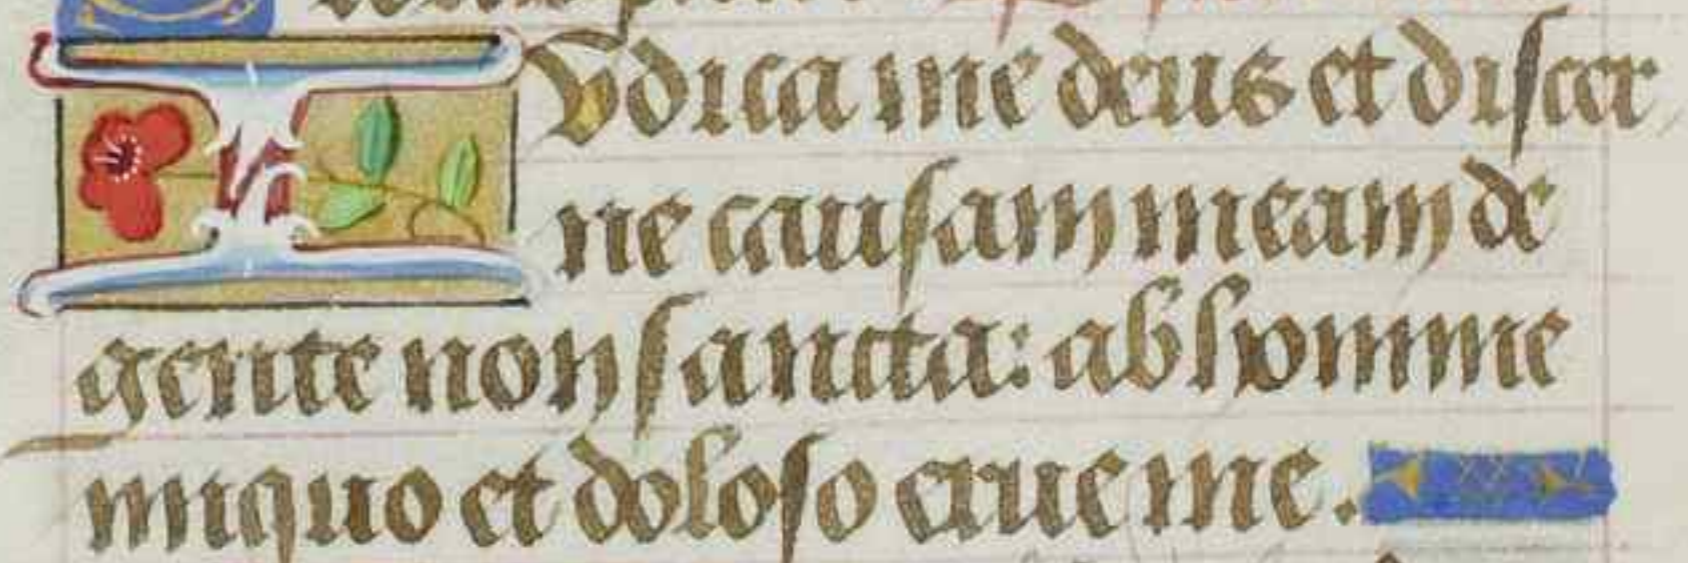 IUdica me deus et discer
ne causam meam de
gente non sancta: ab homine
iniquo et doloso erue me.